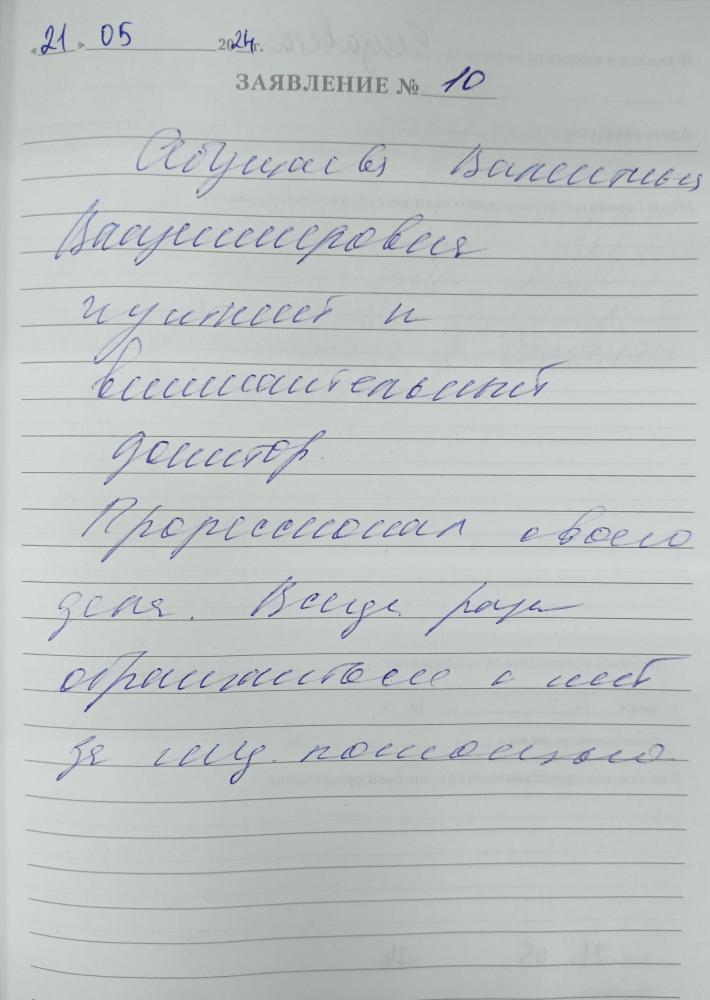 « 21 » 05 2024г.
ЗАЯВЛЕНИЕ № 10
Валентина
Владимировна
чуткий и
внимательный
доктор.
Профессионал своего
дела. Всегда рады
обращаться к ней
за мед. помощью.